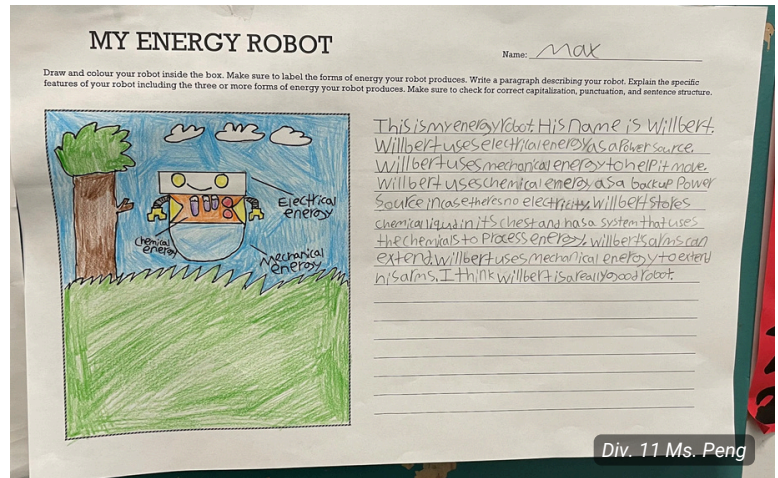 MY ENERGY ROBOT
Name: Max
Draw and colour your robot inside the box. Make sure to label the forms of energy your robot produces. Write a paragraph describing your robot. Explain the specific
features of your robot including the three or more forms of energy your robot produces. Make sure to check for correct capitalization, punctuation, and sentence structure.
Electrical
energy
Chemical
energy
Mechanical
energy
This is my energy robot. His name is Willbert.
Willbert uses electrical energy as a Power source.
Willbert uses mechanical energy to help it move.
Willbert uses chemical energy as a backup Power
Source incase theres no electricity. Willbert stores
chemical liquid in its chest and has a system that uses
the chemicals to Process energy. Willberts arms can
extend. Willbert uses mechanical energy to extend
his arms. I think willbert is a really good robot.
Div. 11 Ms. Peng